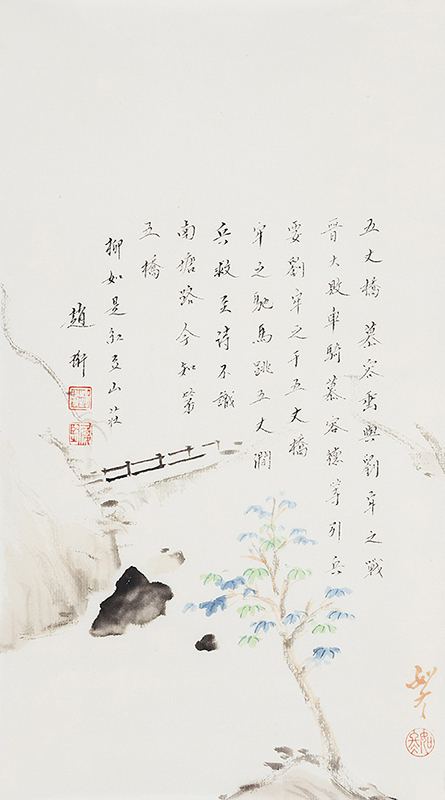 五丈橋慕容垂與劉牢之戰
晉大敗車騎慕容德等引兵
要劉牢之于五丈橋
牢之馳馬跳五丈澗
兵救至詩不識
南塘路今知第
五橋
柳如是紅豆山莊
趙